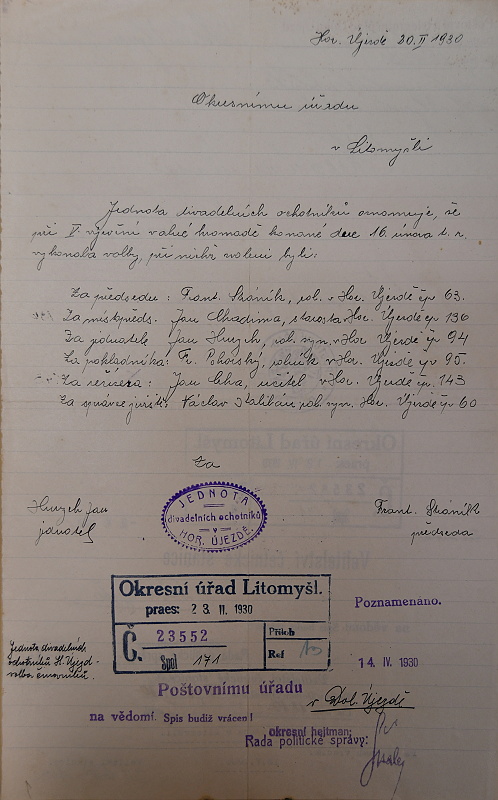 Hor. Újezdě 20.II 1930
Okresnímu úřadu
v Litomyšli
Jednota divadelních ochotníků oznamuje, že
při V. výroční valné hromadě konané dne 16. února t. r.
vykonala volby, při nichž zvoleni byli:
Za předsedu: Frant. Skáník, rol. v Hor. Újezdě čp 63.
Za místpředs. Jan Chadima, starosta Hor. Újezdě čp 136
Za jednatele Jan Hurych, rol. syn. v Hor Újezdě čp 94
Za pokladníka: Fr. Pohorský, rolník v Hor. Újezdě čp. 95.
Za režiséra: Jan Crha, učitel v Hor. Újezdě čp. 143
Za správce jeviště: Václav rol. syn. Hor. Újezdě čp 60
Za
Hurych Jan
jednatel
JEDNOTA
divadelních ochotníků
v
HOR. ÚJEZDĚ.
Frant. Skáník
předseda
Okresní úřad Litomyšl.
praes: 23 II. 1930
Č. 23552
Spol 171
Příloh
Ref
Poznamenáno.
14. IV. 1930
Jednota divadelních
ochotníků H. Újezd -
volba
Poštovnímu úřadu
v Dol. Újezdě
na vědomí. Spis budiž vrácen!
okresní hejtman:
Rada politické správy: